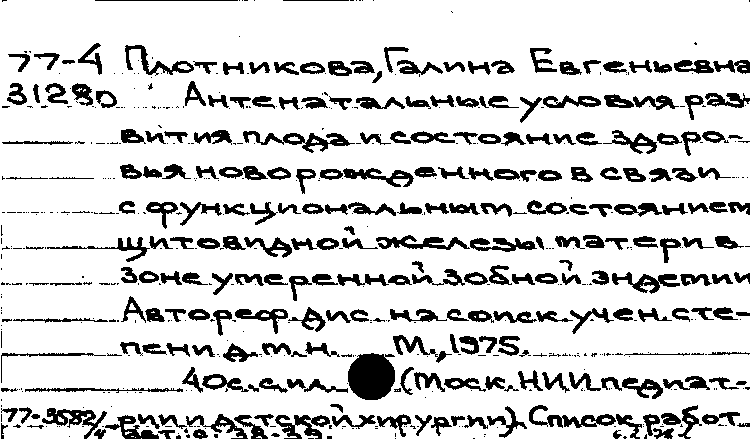 77-4 Плотникова, Галина Евгеньевна
31280 Антенатальные условия раз-
вития плода и состояние здоро-
вья новорожденного в связи
с функциональным состоянием
щитовидной железы матери в
зоне умеренной зобной эндемии
Автореф. дис. на соиск. учен. сте-
пени д. м. н. М., 1975.
40 с. с ил. (Моск. НИИ педиат-
77-3582/ рии и детской хирургии). Список работ
авт.: с. 38-39.